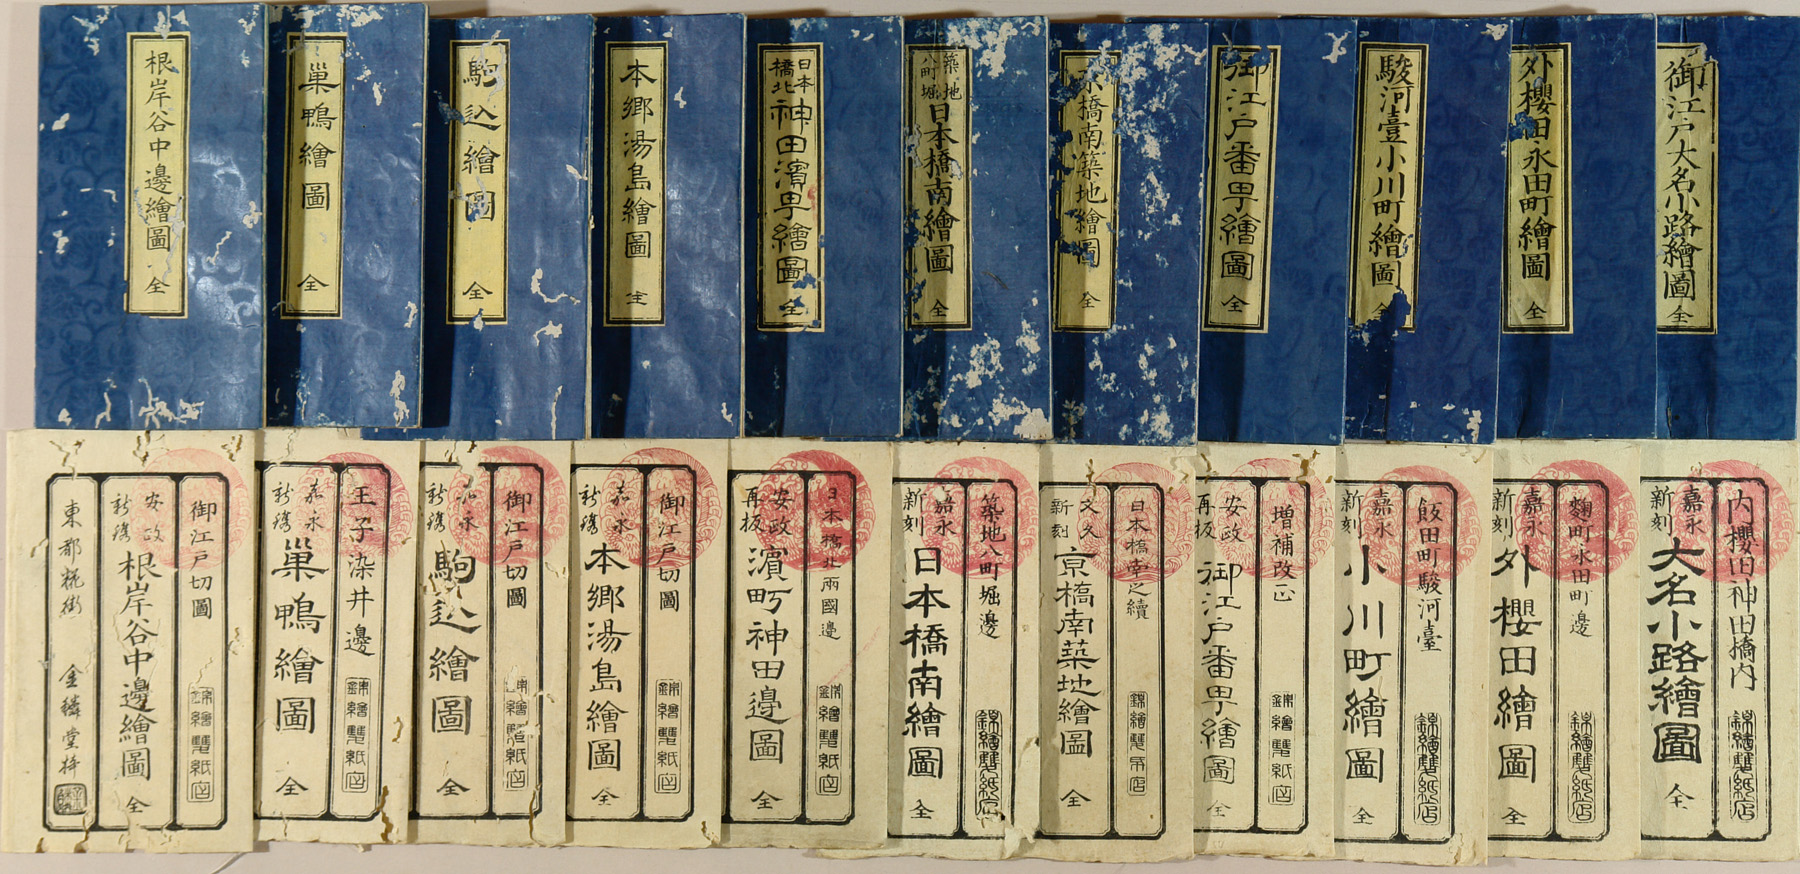 御江戸大名小路繪圖
全
外櫻田永田町繪圖
全
駿河臺小川町繪圖
全
御江戸番町繪圖
全
京橋南築地繪圖
全
築地
八町堀
日本橋南繪圖
全
日本
橋北
神田濱町繪圖
全
本郷湯島繪圖
全
駒込繪圖
全
巢鴨繪圖
全
根岸谷中邊繪圖
全
内櫻田神田橋内
錦繪雙紙店
嘉永
新刻
大名小路繪圖
全
麹町永田町邊
錦繪雙紙店
嘉永
新刻
外櫻田繪圖
全
飯田町駿河臺
錦繪雙紙店
嘉永
新刻
小川町繪圖
全
増補改正
錦繪雙紙店
安政
再板
御江戸番町繪圖
全
日本橋南之續
錦繪雙紙店
文久
新刻
京橋南築地繪圖
全
築地八町堀邊
錦繪雙紙店
嘉永
新刻
日本橋南繪圖
全
日本橋北兩國邊
錦繪雙紙店
安政
再板
濱町神田邊圖
全
御江戸切圖
錦繪雙紙店
嘉永
新鐫
本郷湯島繪圖
全
御江戸切圖
錦繪雙紙店
嘉永
新鐫
駒込繪圖
全
王子染井邊
錦繪雙紙店
嘉永
新鐫
巢鴨繪圖
全
御江戸切圖
錦繪雙紙店
安政
新鐫
根岸谷中邊繪圖
全
東都糀街
金鱗堂梓